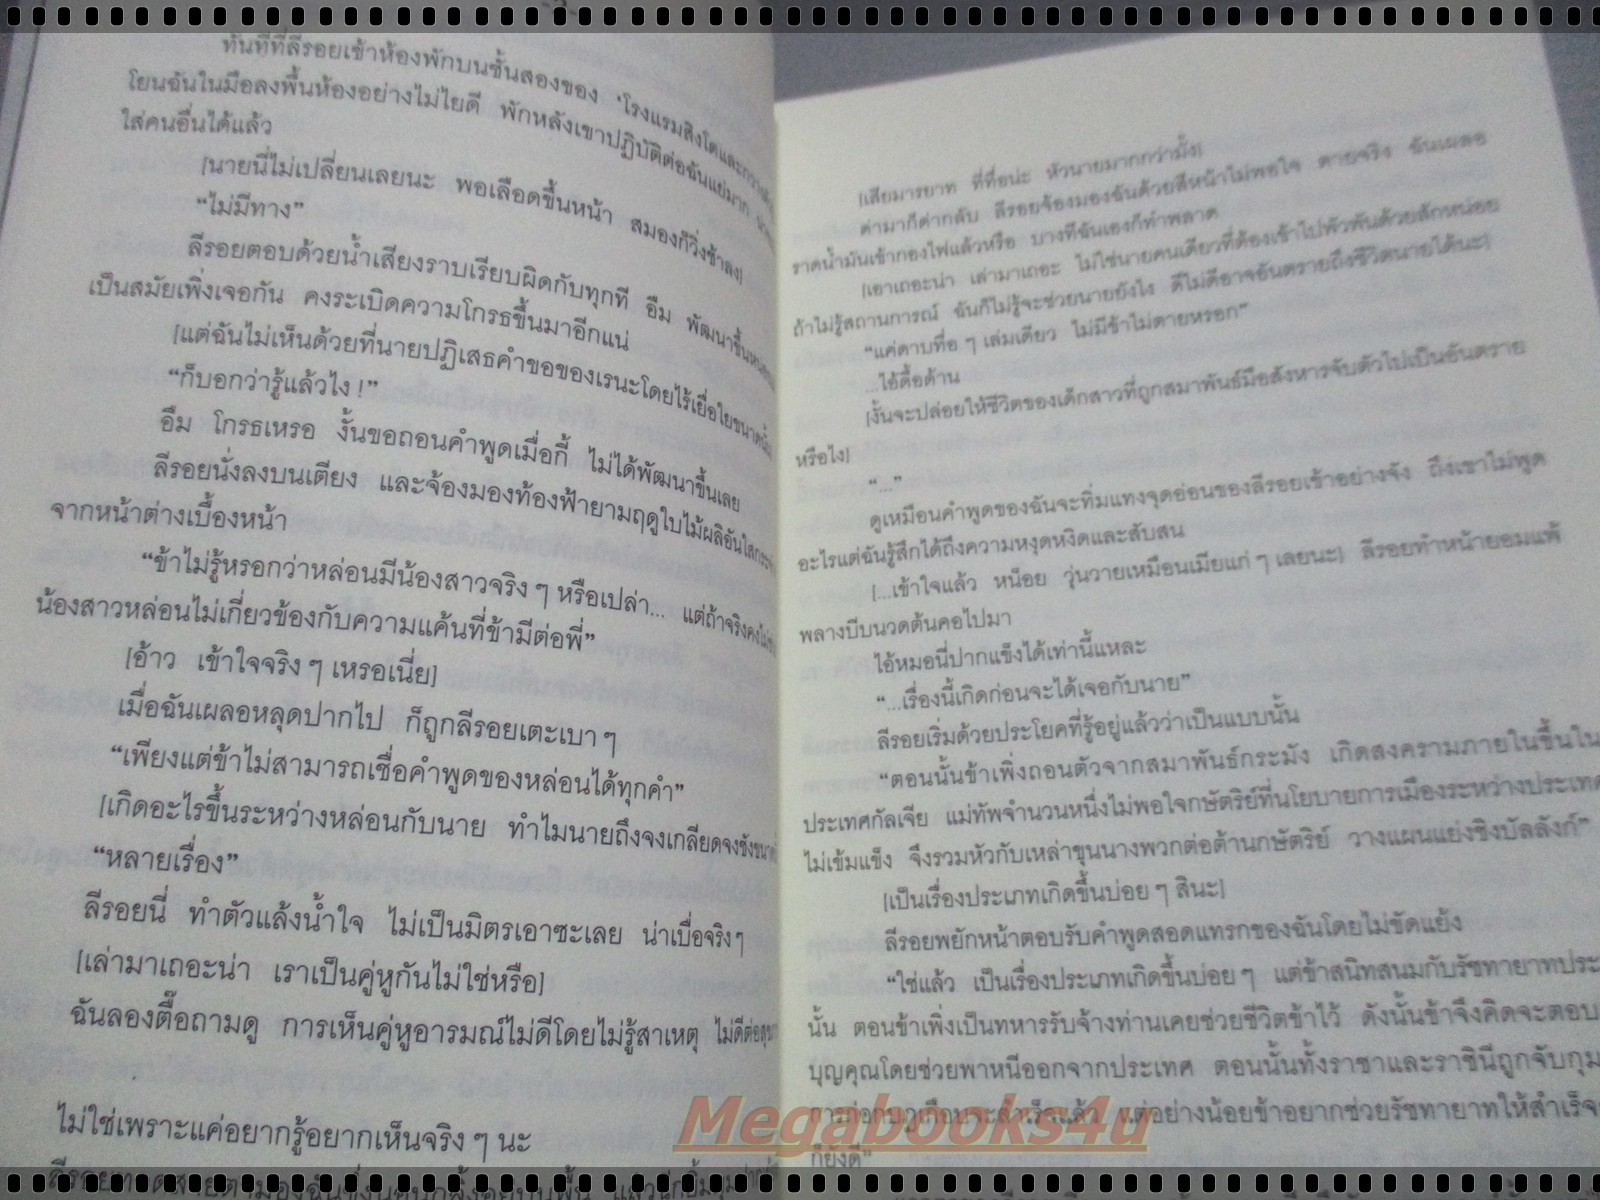 ทันทีที่ลีรอยเข้าห้องพักบนชั้นสองของ 'โรงแรมสิงโตและกวาง
โยนฉันในมือลงพื้นห้องอย่างไม่ไยดี พักหลังเขาปฏิบัติต่อฉันแย่มาก
ใส่คนอื่นได้แล้ว
[นายนี่ไม่เปลี่ยนเลยนะ พอเลือดขึ้นหน้า สมองก็วิ่งช้าลง]
“ไม่มีทาง”
ลีรอยตอบด้วยน้ำเสียงราบเรียบผิดกับทุกที อืม พัฒนาขึ้น
เป็นสมัยเพิ่งเจอกัน คงระเบิดความโกรธขึ้นมาอีกแน่
[แต่ฉันไม่เห็นด้วยที่นายปฏิเสธคำขอของเรนะโดยไร้เยื่อใยขนาดนั้น
“ก็บอกว่ารู้แล้วไง !”
อืม โกรธเหรอ งั้นขอถอนคำพูดเมื่อกี้ ไม่ได้พัฒนาขึ้นเลย
ลีรอยนั่งลงบนเตียง และจ้องมองท้องฟ้ายามฤดูใบไม้ผลิอันใสกระจ่าง
จากหน้าต่างเบื้องหน้า
“ข้าไม่รู้หรอกว่าหล่อนมีน้องสาวจริง ๆ หรือเปล่า... แต่ถ้าจริงคง
น้องสาวหล่อนไม่เกี่ยวข้องกับความแค้นที่ข้ามีต่อพี่”
[อ้าว เข้าใจจริง ๆ เหรอเนี่ย]
เมื่อฉันเผลอหลุดปากไป ก็ถูกลีรอยเตะเบา ๆ
“เพียงแต่ข้าไม่สามารถเชื่อคำพูดของหล่อนได้ทุกคำ”
[เกิดอะไรขึ้นระหว่างหล่อนกับนาย ทำไมนายถึงจงเกลียดจงชังขนาด
“หลายเรื่อง”
ลีรอยนี่ ทำตัวแล้งน้ำใจ ไม่เป็นมิตรเอาซะเลย น่าเบื่อจริง ๆ
[เล่ามาเถอะน่า เราเป็นคู่หูกันไม่ใช่หรือ]
ฉันลองตื๊อถามดู การเห็นคู่หูอารมณ์ไม่ดีโดยไม่รู้สาเหตุ ไม่ดีต่อ
ไม่ใช่เพราะแค่อยากรู้อยากเห็นจริง ๆ นะ
[เสียมารยาท ที่ที่อน่ะ หัวนายมากกว่ามั้ง]
ด่ามาก็ด่ากลับ ลีรอยจ้องมองฉันด้วยสีหน้าไม่พอใจ ตายจริง ฉันเผลอ
ราดน้ำมันเข้ากองไฟแล้วหรือ บางทีฉันเองก็ทำพลาด
[เอาเถอะน่า เล่ามาเถอะ ไม่ใช่นายคนเดียวที่ต้องเข้าไปพัวพันด้วยสักหน่อย
ถ้าไม่รู้สถานการณ์ ฉันก็ไม่รู้จะช่วยนายยังไง ดีไม่ดีอาจอันตรายถึงชีวิตนายได้นะ]
“แค่ดาบทื่อ ๆ เล่มเดียว ไม่มีข้าไม่ตายหรอก”
...ไอ้ดื้อด้าน
[งั้นจะปล่อยให้ชีวิตของเด็กสาวที่ถูกสมาพันธ์มือสังหารจับตัวไปเป็นอันตราย
หรือไง]
“...”
ดูเหมือนคำพูดของฉันจะทิ่มแทงจุดอ่อนของลีรอยเข้าอย่างจัง ถึงเขาไม่พูด
อะไรแต่ฉันรู้สึกได้ถึงความหงุดหงิดและสับสน
[...เข้าใจแล้ว หน็อย วุ่นวายเหมือนเมียแก่ ๆ เลยนะ] ลีรอยทำหน้ายอมแพ้
พลางบีบนวดต้นคอไปมา
ไอ้หมอนี่ปากแข็งได้เท่านี้แหละ
“...เรื่องนี้เกิดก่อนจะได้เจอกับนาย”
ลีรอยเริ่มด้วยประโยคที่รู้อยู่แล้วว่าเป็นแบบนั้น
“ตอนนั้นข้าเพิ่งถอนตัวจากสมาพันธ์กระมัง เกิดสงครามภายในขึ้นใน
ประเทศกัลเจีย แม่ทัพจำนวนหนึ่งไม่พอใจกษัตริย์ที่นโยบายการเมืองระหว่างประเทศ
ไม่เข้มแข็ง จึงรวมหัวกับเหล่าขุนนางพวกต่อต้านกษัตริย์ วางแผนแย่งชิงบัลลังก์”
[เป็นเรื่องประเภทเกิดขึ้นบ่อย ๆ สินะ]
ลีรอยพยักหน้าตอบรับคำพูดสอดแทรกของฉันโดยไม่ขัดแย้ง
“ใช่แล้ว เป็นเรื่องประเภทเกิดขึ้นบ่อย ๆ แต่ข้าสนิทสนมกับรัชทายาทประ
นั้น ตอนข้าเพิ่งเป็นทหารรับจ้างท่านเคยช่วยชีวิตข้าไว้ ดังนั้นข้าจึงคิดจะตอบ
บุญคุณโดยช่วยพาหนีออกจากประเทศ ตอนนั้นทั้งราชาและราชินีถูกจับกุม
การก่อกบฏเกือบจะสำเร็จแล้ว แต่อย่างน้อยข้าอยากช่วยรัชทายาทให้สำเร็จ
ก็ยังดี”
Megabooks4u